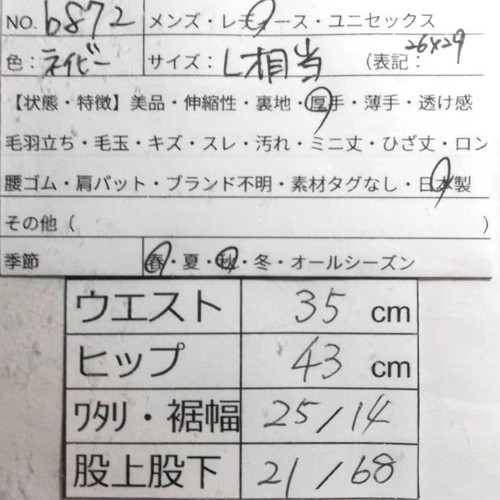 NO. 6872 メンズ・レディース・ユニセックス
色：ネイビー サイズ：L相当 （表記：26×29
【状態・特徴】美品・伸縮性・裏地・厚手・薄手・透け感
毛羽立ち・毛玉・キズ・スレ・汚れ・ミニ丈・ひざ丈・ロン
腰ゴム・肩パット・ブランド不明・素材タグなし・日本製
その他（ ）
季節 春・夏・秋・冬・オールシーズン
ウエスト 35 cm
ヒップ 43 cm
ワタリ・裾幅 25/14
股上股下 21/68